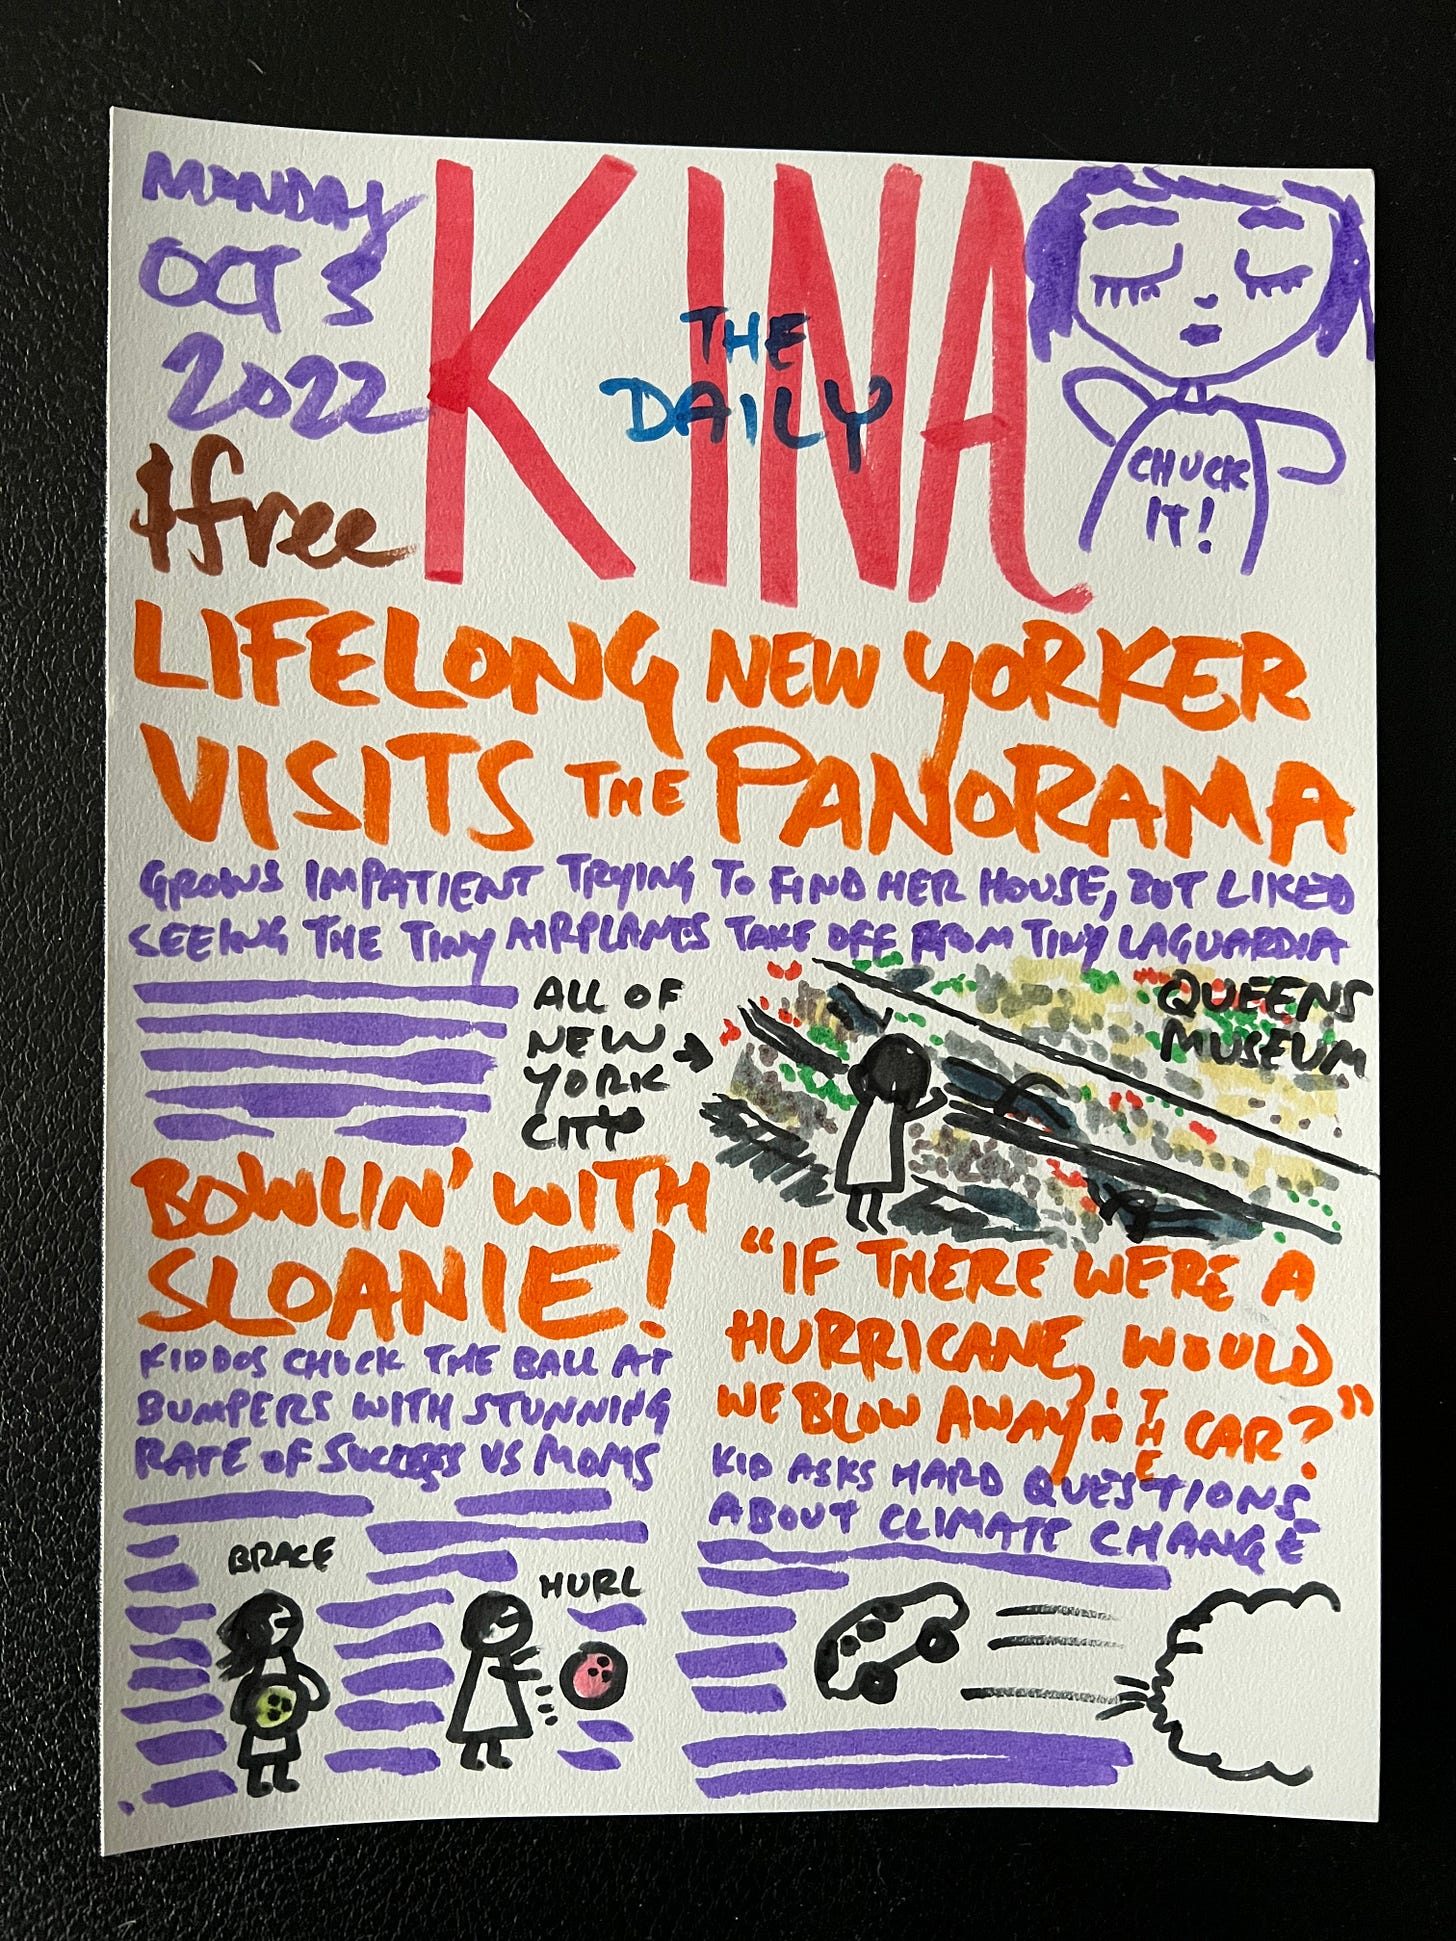 MONDAY
OCT 3
2022
$free
THE
DAILY
KINA
CHUCK
IT!
LIFELONG NEW YORKER
VISITS THE PANORAMA
GROWS IMPATIENT TRYING TO FIND HER HOUSE, BUT LIKED
SEEING THE TINY AIRPLANES TAKE OFF FROM TINY LAGUARDIA
ALL OF
NEW
YORK
CITY
QUEENS
MUSEUM
BOWLIN' WITH
SLOANIE!
KIDDOS CHUCK THE BALL AT
BUMPERS WITH STUNNING
RATE OF SUCCESS VS MOMS
BRACE
HURL
"IF THERE WERE A
HURRICANE, WOULD
WE BLOW AWAY IN THE CAR?"
KID ASKS HARD QUESTIONS
ABOUT CLIMATE CHANGE